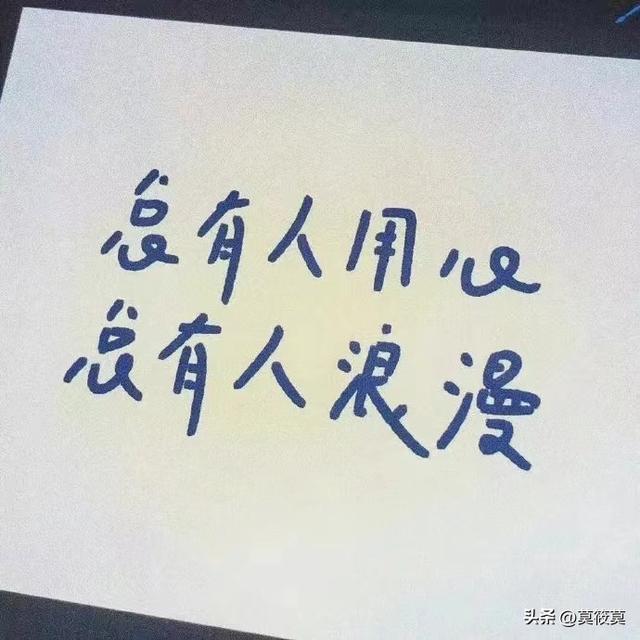 总有人用心
总有人浪漫
头条 @莫筱莫